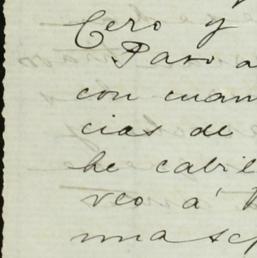 Cero y
Paso a
con cuan
cias de
he cabil
veo á
unas